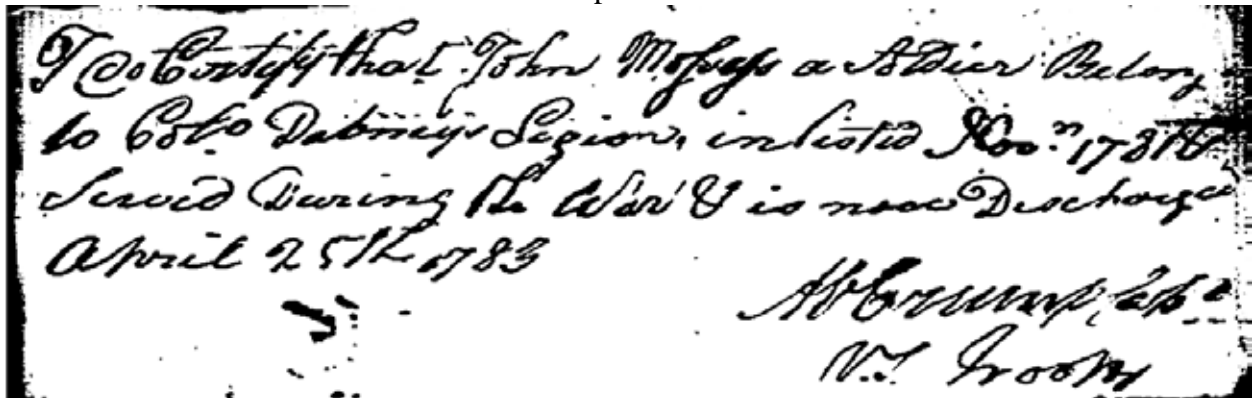 I do Certify that John a Soldier Belong
to Colo. Dabneys Legion, inlisted Novr. 1781 &
Served During the War & is now Discharged
April 25th 1783
Abner Crump, Capt
V.S. Troops